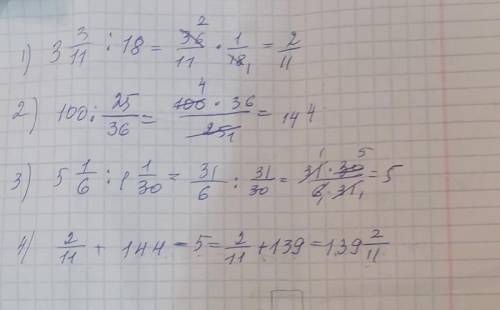 1) 3 3/11 : 18 = 36/11 · 1/18 = 2/11
2) 100 : 25/36 = 100 · 36/25 = 144
3) 5 1/6 : 1 1/30 = 31/6 : 31/30 = 31 · 30/6 · 31 = 5
4) 2/11 + 144 - 5 = 2/11 + 139 = 139 2/11